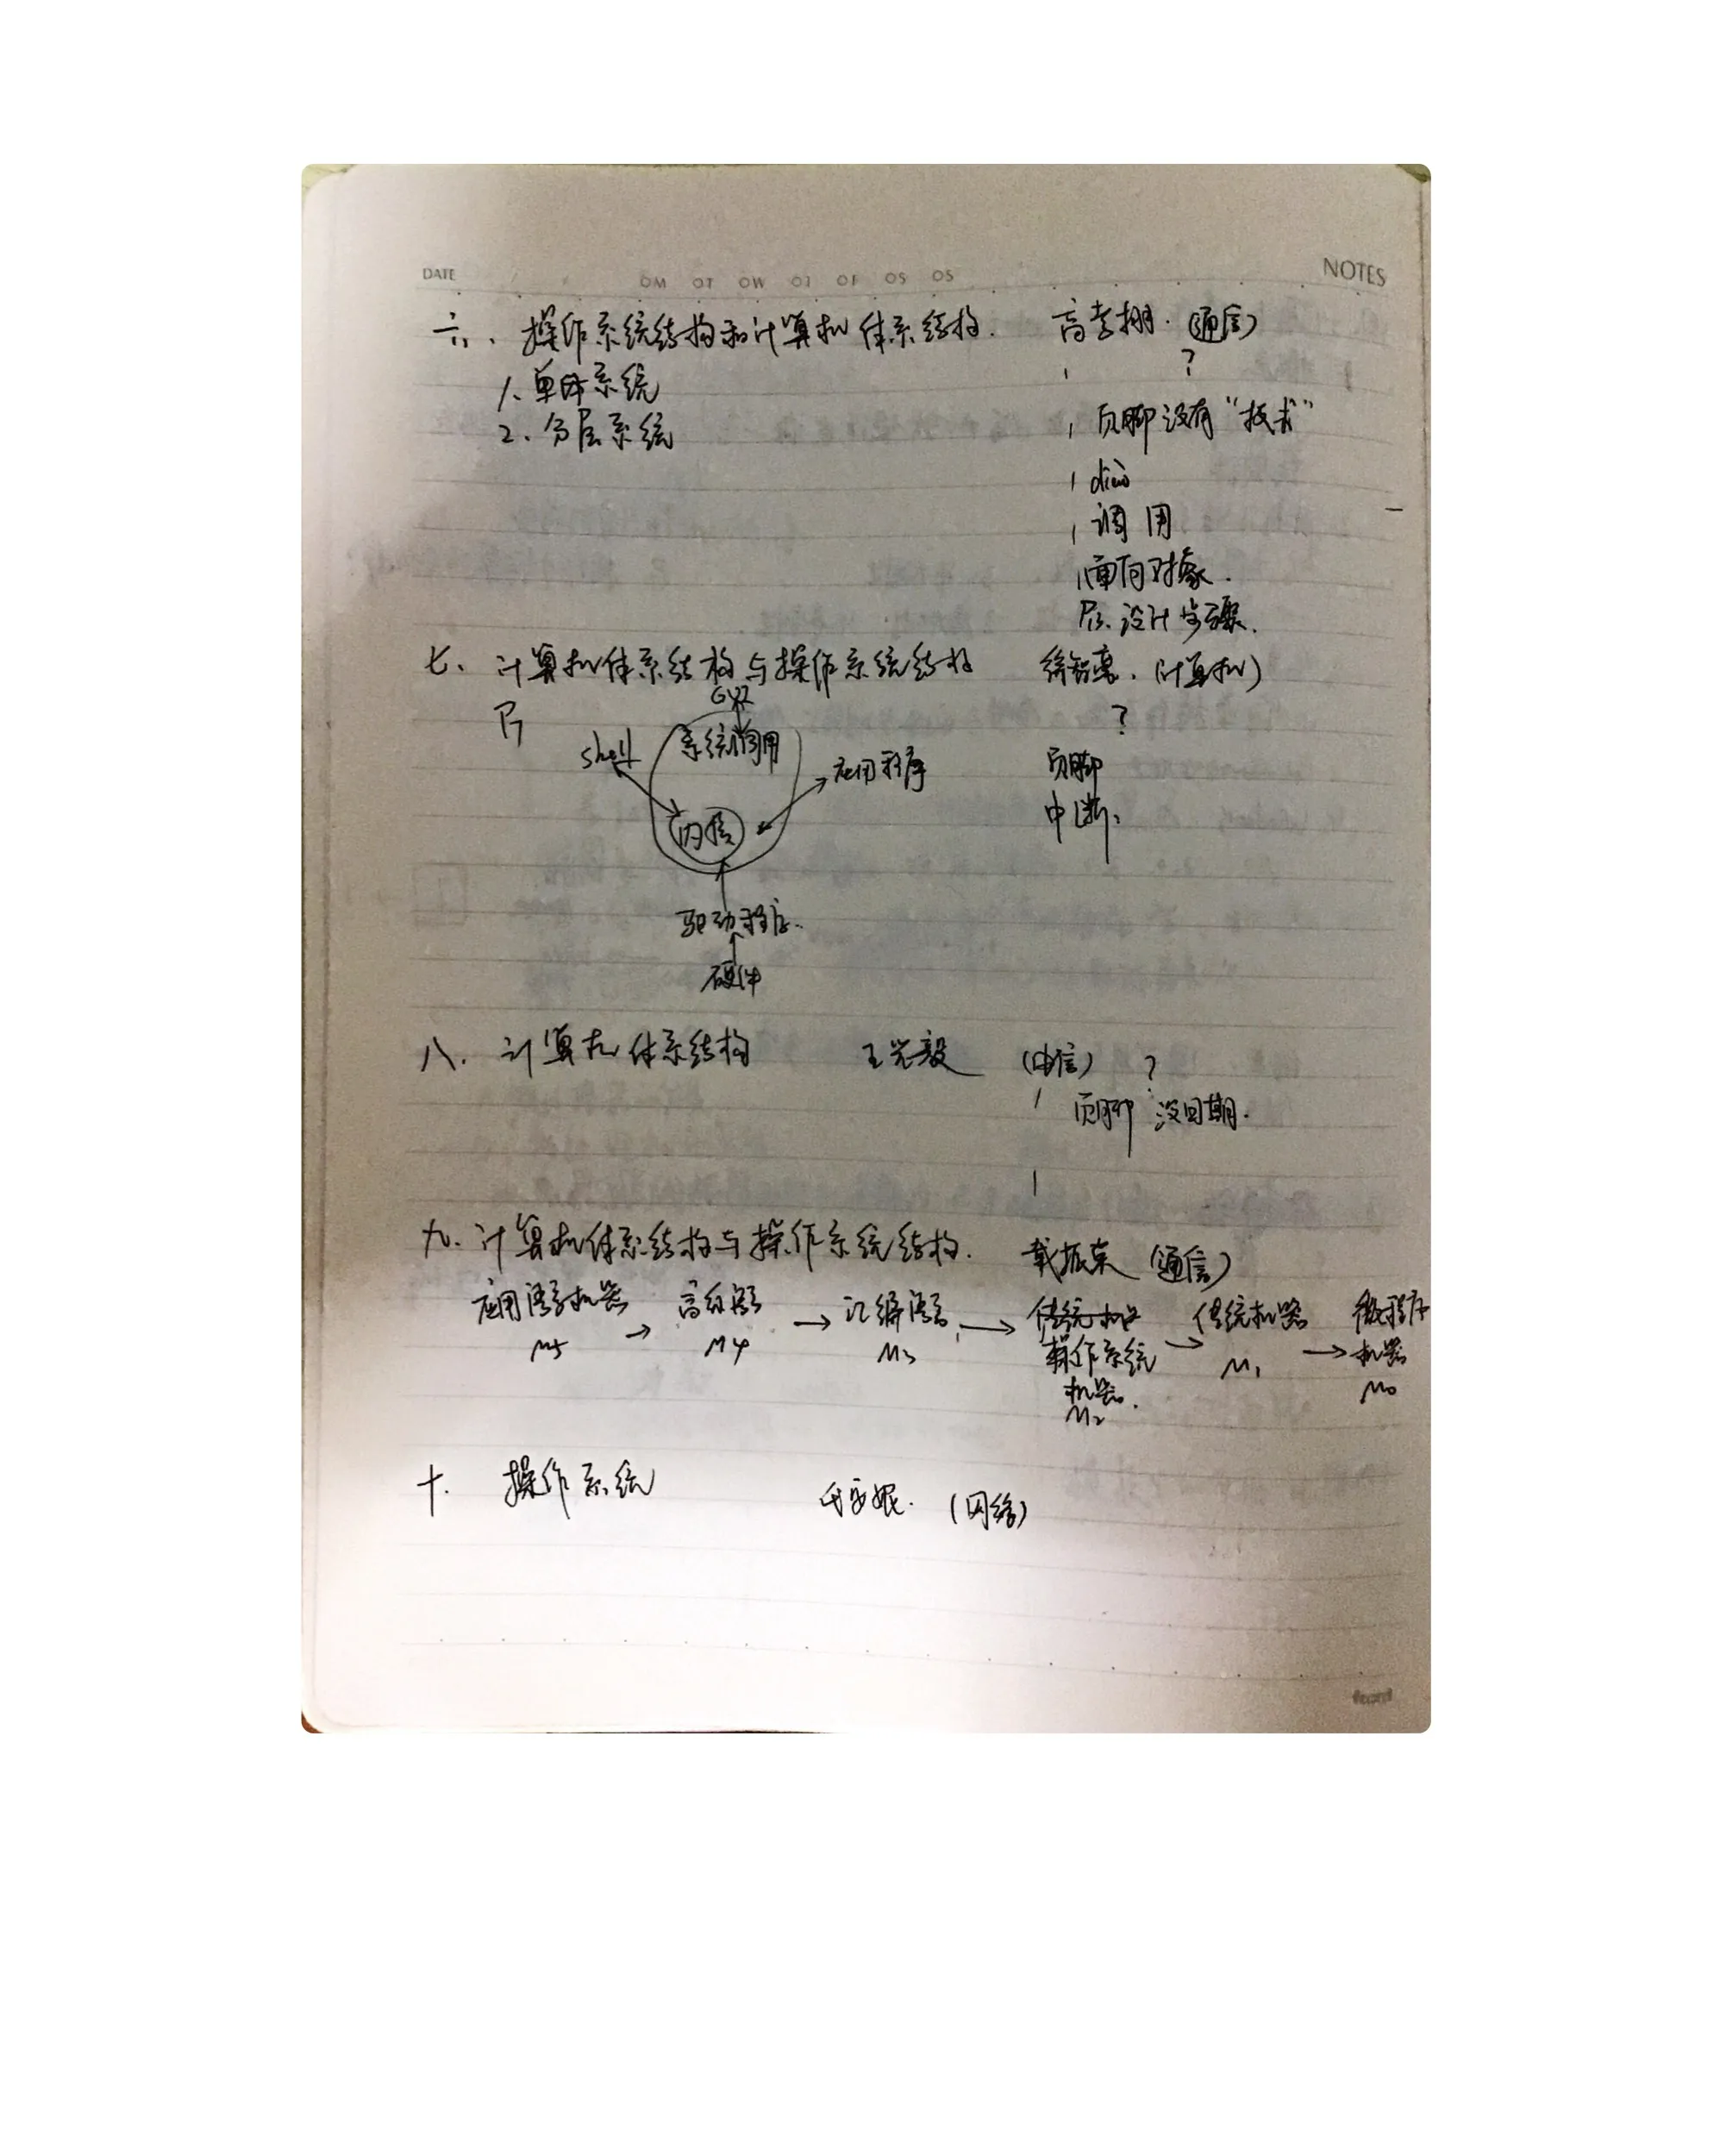 DATE OM OT OW OT OF OS OS NOTES
六、操作系统结构和计算机体系结构. (通信)
?
1、单体系统
2、分层系统
页脚没有“技术”
调用
面向对象.
设计步骤.
七、计算机体系结构与操作系统结构 (计算机)
?
系统调用
shell
应用程序
页脚
中断.
内核
驱动程序.
硬件
八. 计算机体系结构 王光毅 (电信) ?
页脚 没日期.
九. 计算机体系结构与操作系统结构. 戴振荣 (通信)
应用语言机器 M5 → 高级语言 M4 → 汇编语言 M3 → 操作系统机器. M2 → 传统机器 M1 → 微程序机器 M0
十. 操作系统 (网络)